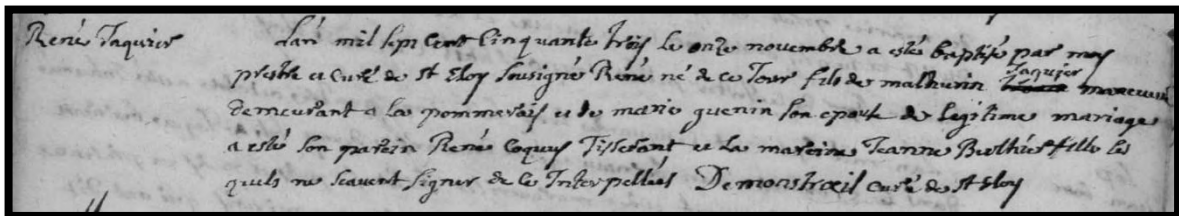 René Jaquier
L'an mil sept cent cinquante trois le onze novembre a esté baptisé par moy
prestre et curé de St Eloy sousigné René né de ce jour fils de mathurin Jaquier
demeurant a la pommerais et de marie quenin son epouse de legitime mariage
a esté son parein René Coquis Tisserant et la mareine Jeanne Berthée fille les
quels ne scavent signer de ce Interpellés Demonstrœil curé de St Eloy